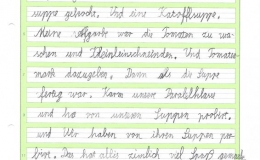 suppe gekocht. Und eine Kartoffelsuppe.
Meine Aufgabe war die Tomaten zu wa-
schen und kleinschneiden. Und Tomaten-
mark dazugeben. Dann als die Suppe
fertig war. Kam unsere Parallelklasse
und hat von unseren Suppen probiert.
und Wir haben von ihren Suppen pro-
biert. Das hat alles ziemlich viel Spaß gemacht